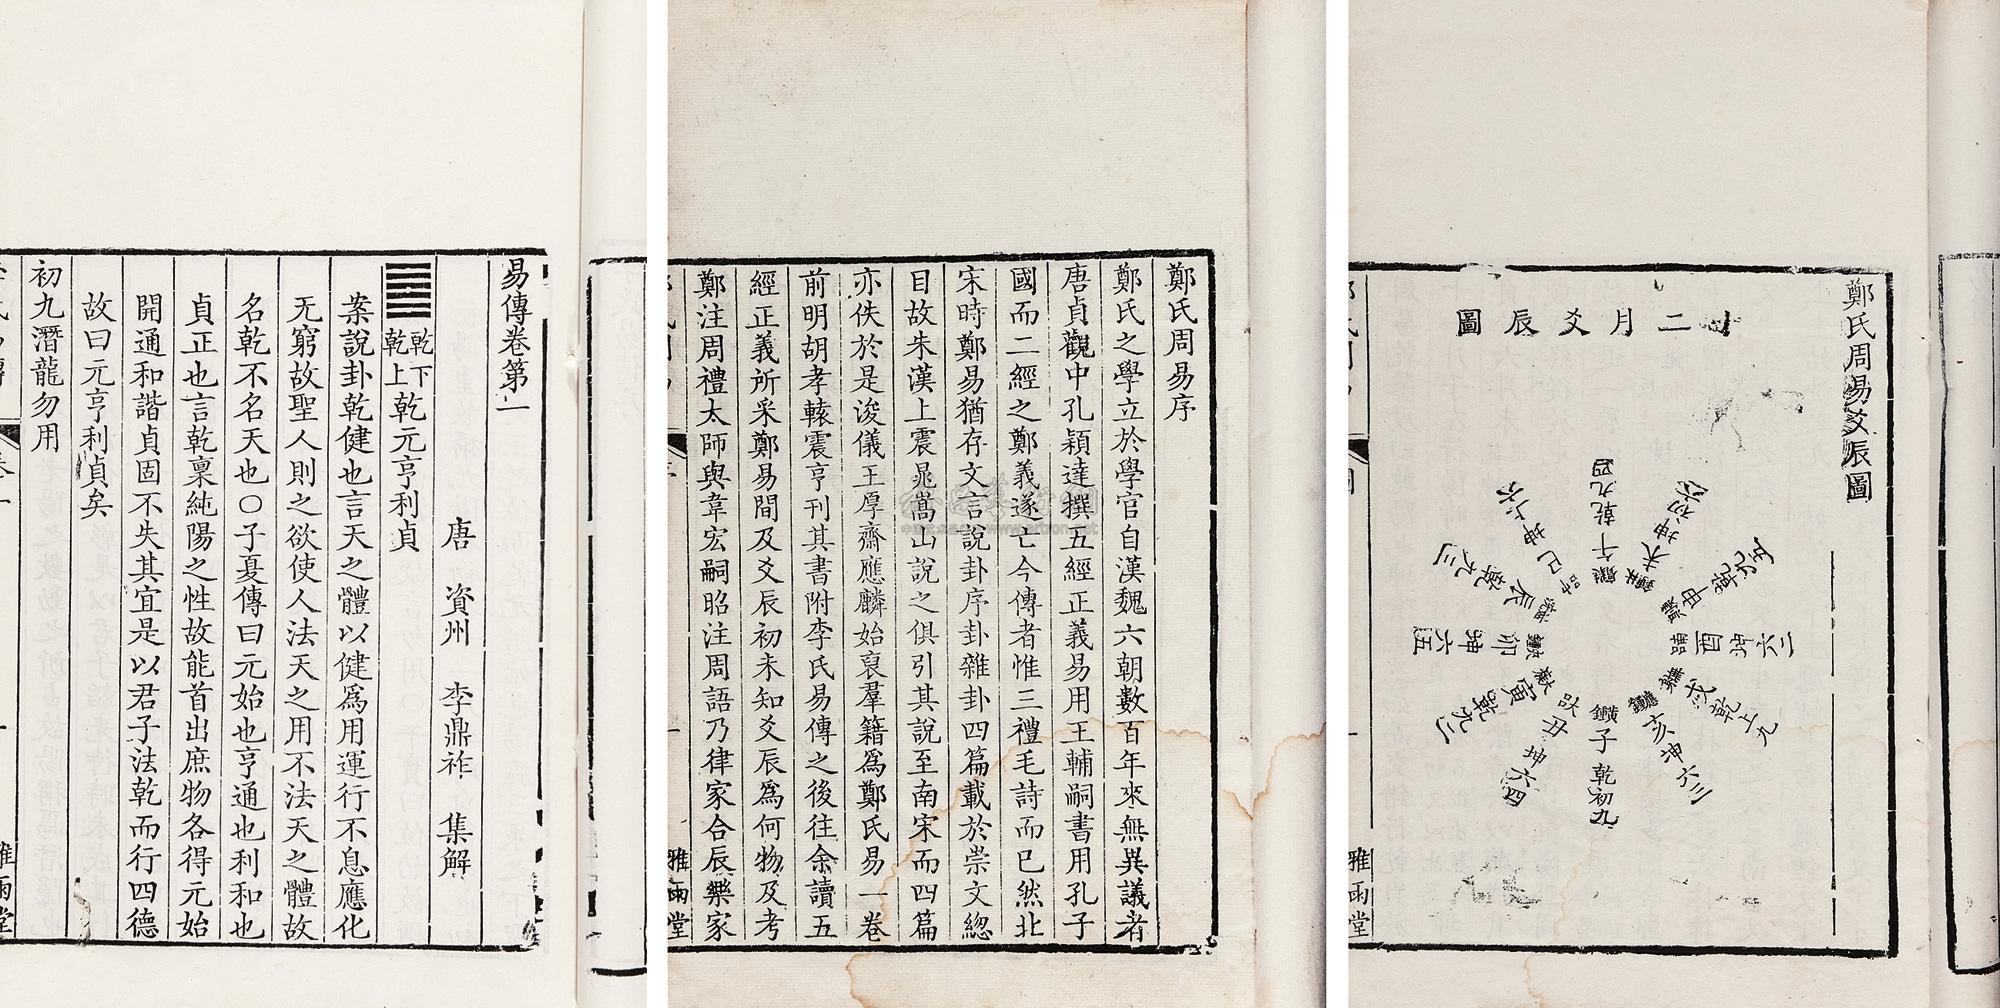 易傳卷第一
唐 資州 李鼎祚 集解
乾下乾上乾元亨利貞
案說卦乾健也言天之體以健爲用運行不息應化
无窮故聖人則之欲使人法天之用不法天之體故
名乾不名天也○子夏傳曰元始也亨通也利和也
貞正也言乾稟純陽之性故能首出庶物各得元始
開通和諧貞固不失其宜是以君子法乾而行四德
故曰元亨利貞矣
初九潛龍勿用
雅雨堂
鄭氏周易序
鄭氏之學立於學官自漢魏六朝數百年來無異議者
唐貞觀中孔穎達撰五經正義易用王輔嗣書用孔子
國而二經之鄭義遂亡今傳者惟三禮毛詩而已然北
宋時鄭易猶存文言說卦序卦雜卦四篇載於崇文緫
目故朱漢上震晁嵩山說之俱引其說至南宋而四篇
亦佚於是浚儀王厚齋應麟始裒羣籍爲鄭氏易一卷
前明胡孝轅震亨刊其書附李氏易傳之後往余讀五
經正義所采鄭易間及爻辰初未知爻辰爲何物及考
鄭注周禮太師與韋宏嗣昭注周語乃律家合辰樂家
雅雨堂
鄭氏周易爻辰圖
二月爻辰圖
子乾初九
丑坤六四
寅乾九二
卯坤六五
辰乾九三
巳坤上六
午乾九四
未坤初六
申乾九五
酉坤六二
戌乾上九
亥坤六三
雅雨堂